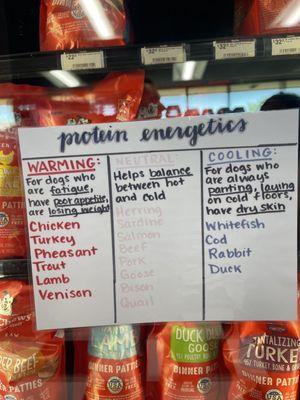 $22
$32
$32
$32
protein energetics
WARMING:
For dogs who
are fatigue,
have poor appetite,
are losing weight
Chicken
Turkey
Pheasant
Trout
Lamb
Venison
NEUTRAL:
Helps balance
between hot
and cold
Herring
Sardine
Salmon
Beef
Pork
Goose
Bison
Quail
COOLING:
For dogs who
are always
panting, laying
on cold floors,
have dry skin
Whitefish
Cod
Rabbit
Duck
PATTIES
BEEF
PATTIES
DINNER PATTIES
DUCK DUCK
GOOSE
DINNER PATTIES
TANTALIZING
TURKEY
DINNER PATTIES